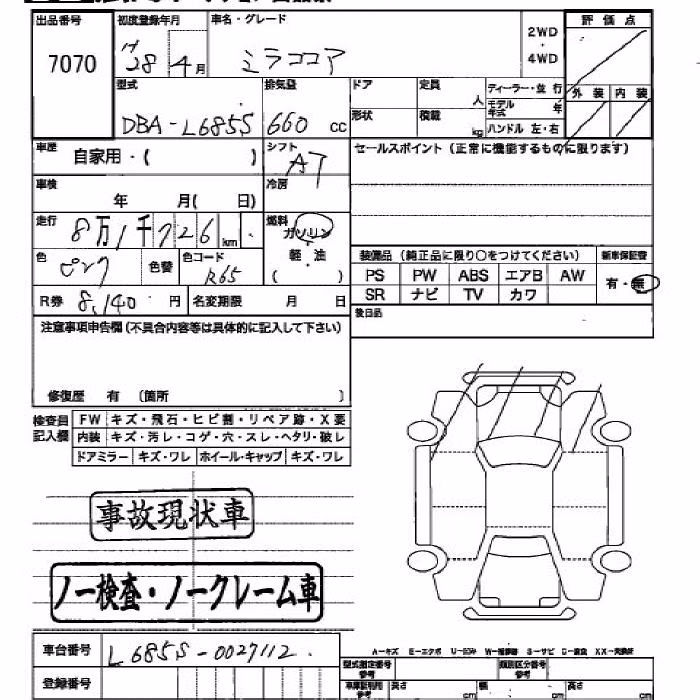 出品番号 初度登録年月 車名・グレード 2WD・4WD 評価点
7070 H28年4月 ミラココア
外装 内装
型式 排気量 ドア 定員 人 ディーラー・並行
DBA-L685S 660 cc 形状 積載 kg モデル年式 年
ハンドル 左・右
車歴 自家用・( ) シフト AT セールスポイント(正常に機能するものに限ります)
車検 年 月( 日) 冷房
走行 8万1千726km 燃料 ガソリン・軽・油 ( )
色 ピンク 色替 色コード R65
装備品(純正品に限り〇をつけてください) 新車保証書
PS PW ABS エアB AW 有・無
SR ナビ TV カワ
R券 8,140円 名変期限 月 日
後日品
注意事項申告欄(不具合内容等は具体的に記入して下さい)
修復歴 有 〔箇所 〕
検査員記入欄 FW キズ・飛石・ヒビ割・リペア跡・X要
内装 キズ・汚レ・コゲ・穴・スレ・ヘタリ・破レ
ドアミラー キズ・ワレ ホイール・キャップ キズ・ワレ
事故現状車
ノー検査・ノークレーム車
車台番号 L685S-0027112
A-キズ E-エクボ U-凹み
登録番号
型式指定番号 参考 類別区分番号 参考
長さ cm 幅 cm 高さ cm